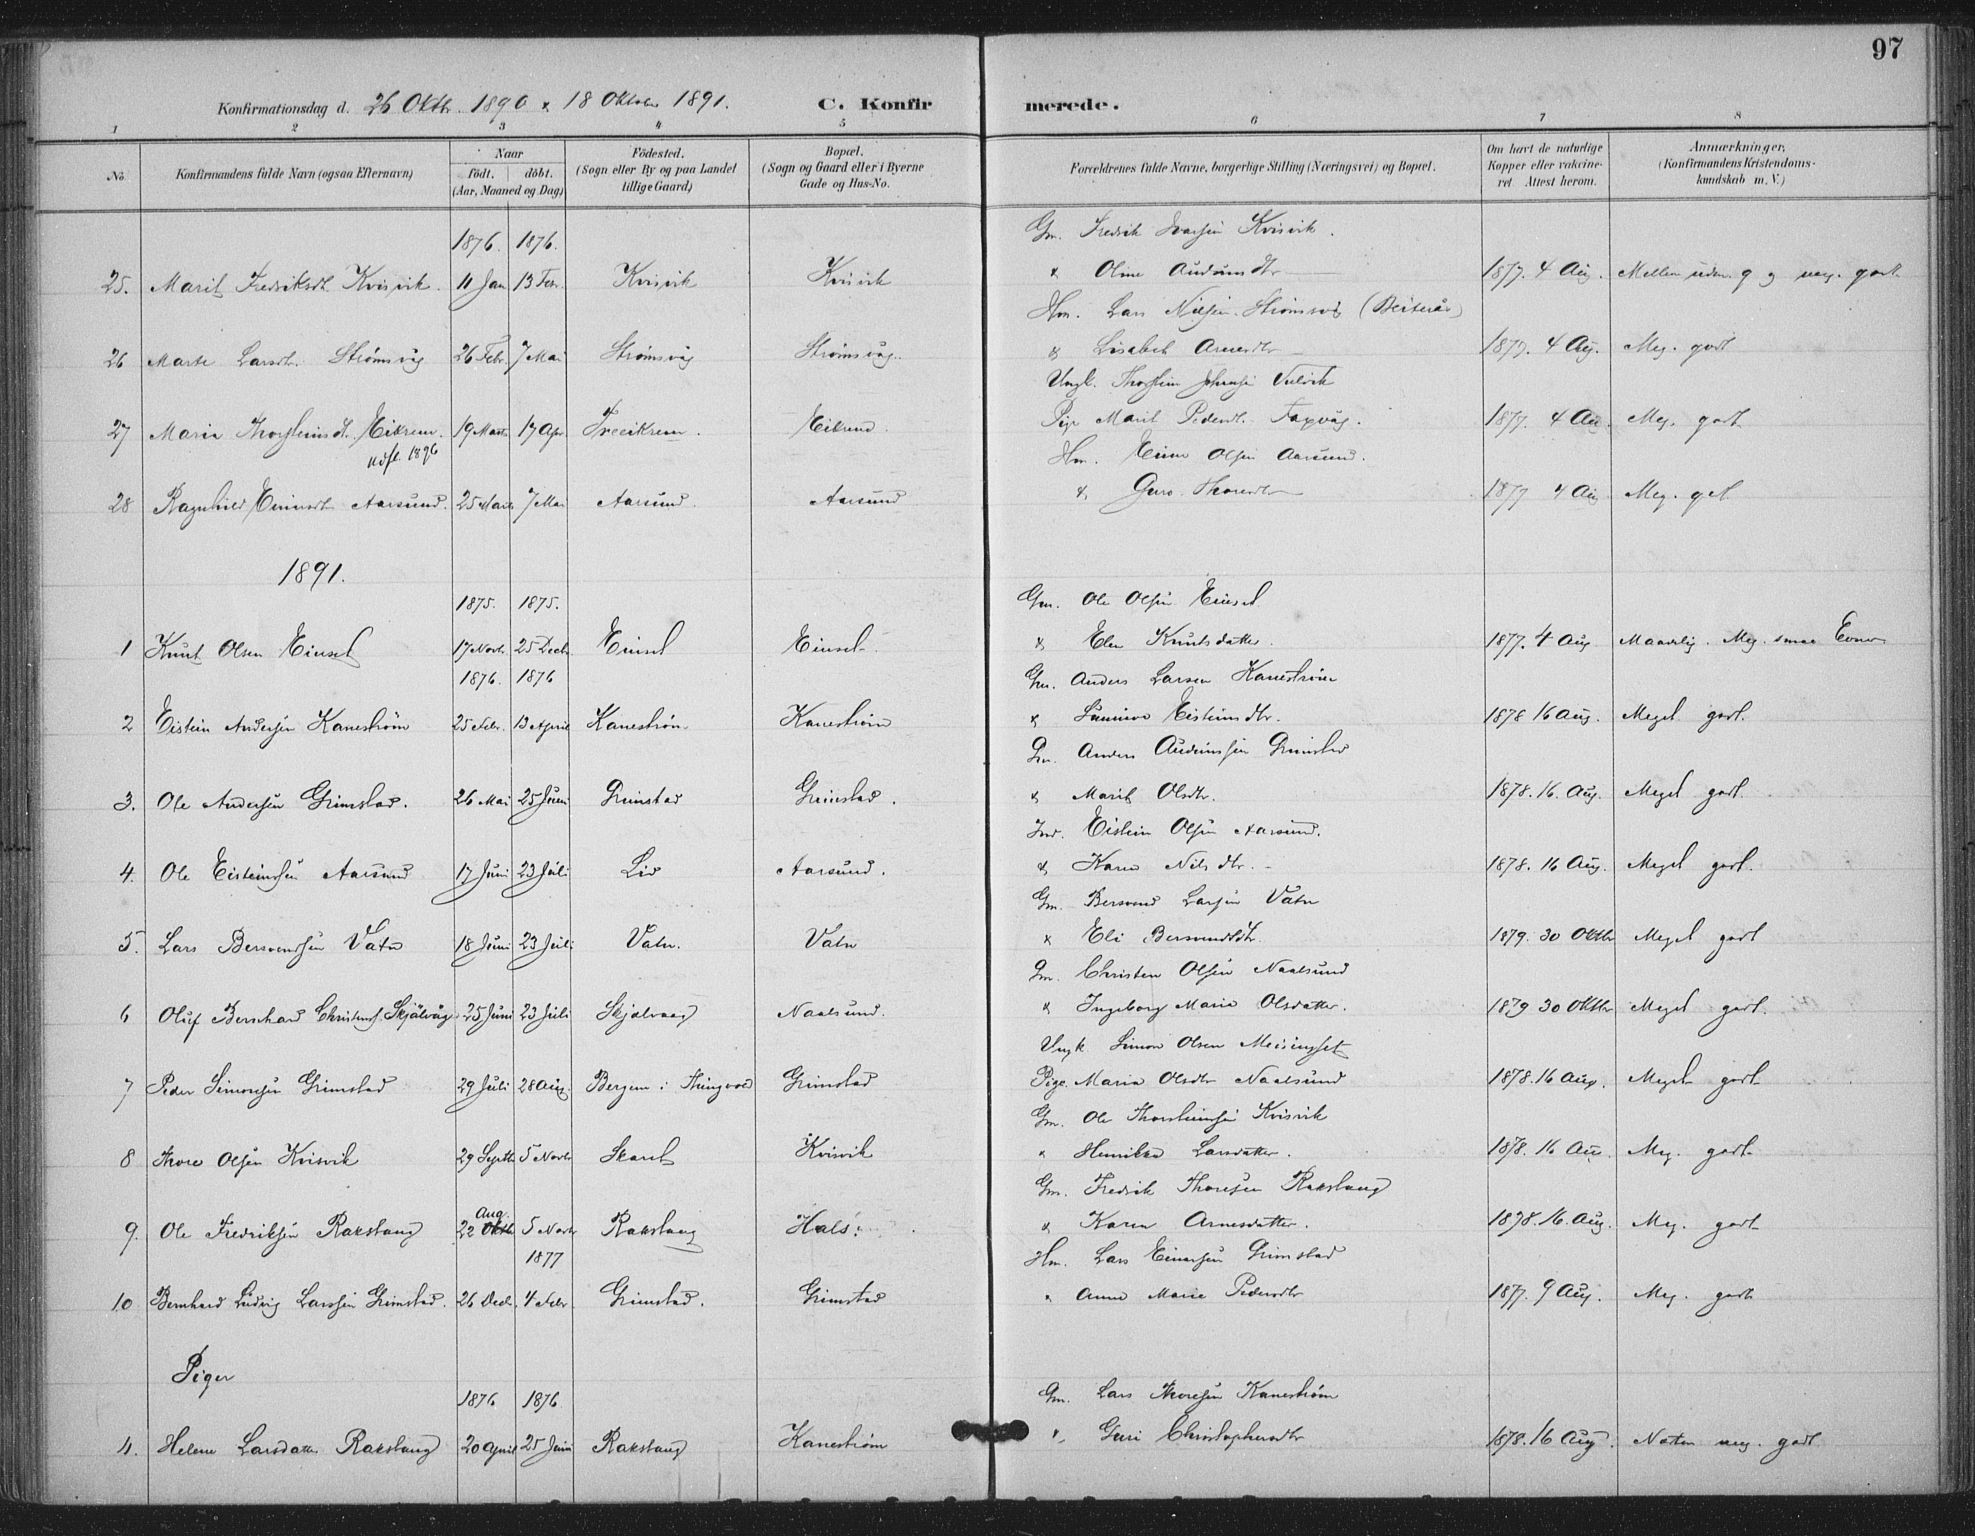 97
Konfirmationsdag d. 26 Oktbr. 1890 & 18 Oktober 1891. C. Konfirmerede.
1 2 3 4 5 6 7 8
No. Konfirmandens fulde Navn (ogsaa Efternavn) Naar Födested. Bopæl. Forældrenes fulde Navne, borgerlige Stilling (Næringsvei) og Bopæl. Om havt de naturlige Anmærkninger,
födt. döbt. (Sogn eller By og paa Landet (Sogn og Gaard eller i Byerne Kopper eller vakcine- (Konfirmandens Kristendoms-
(Aar, Maaned og Dag) tillige Gaard) Gade og Hus-No. ret. Attest herom. kundskab m. V.)
1876. 1876. Gm. Fredrik Kvisvik.
25. Marit Fredriksdt. Kvisvik. 11 Jan 13 Febr. Kvisvik Kvisvik & Oline Audunsdtr 1877. 4 Aug. Mellem meg. godt
Hm. Lars Nilsen Strömsvåg
26 Marte Larsdtr. Strömsvåg 26 Febr. 7 Mai Strömsvåg Strömsvåg. & Lisabet 1877. 4 Aug. Meg. godt
Ungk. Thorstein Johnsen
27 Maria Thorsteinsdt. Eikrem. 19 Marts 17 Apr Eikrem Pige Marit Pedersdt. Faxvåg. 1877 4 Aug. Meg. godt
1896 Hm. Einar Olsen Aarsund.
28 Ragnhild Einarsdt. Aarsund. 25 Marts 7 Mai Aarsund. Aarsund & Guro Thoresdtr 1877 4 Aug Meg. gdt
1891.
1875. 1875. Gm. Ole Olsen Einset
1 Knut Olsen Einset 17 Novbr. 25 Decbr Einset Einset & Elen Knutsdatter. 1877. 4 Aug. Maadelig. Meg. smaa Evner
1876. 1876 Gm. Anders Larsen Kanestrøm
2 Eistein Andersen Kanestrøm 25 Febr. 13 April Kanestrøm Kanestrøm & Eisteinsdtr. 1878 16 Aug. Meget godt.
Gm. Anders Audunssen Grimstad
3. Ole Andersen Grimstad. 26 Mai 25 Juni Grimstad Grimstad. & Marit Olsdtr. 1878. 16. Aug. Meget godt.
Ind. Eistein Olsen Aarsund.
4. Ole Eisteinsen Aarsund 17 Juni 23 Juli Lid Aarsund. & Karen Nilsdtr. 1878. 16 Aug. Meget godt.
Gm. Bersvend Larsen Vatn
5. Lars Bersvendsen Vatn 18 Juni 23 Juli Vatn. Vatn & Eli Bersvendsdtr. 1879. 30 Oktbr Meget godt
Gm. Christen Olsen Naalsund
6 Oluf Bernhard Christens. Skjålvåg 25 Juni 23 Juli Skjålvaag Naalsund. & Ingeborg Maria Olsdatter. 1879 30 Oktbr Meget godt.
Ungk. Simon Olsen Meisingset
7 Peder Simonsen Grimstad 29 Juli 28 Aug. Bergem i Thingvold Grimstad Pige. Maria Olsdtr Naalsund 1878. 16 Aug. Meget godt
Gm. Ole Thorsteinsen Kvisvik
8 Thore Olsen Kvisvik 29 Septbr 5 Novbr Skaret Kvisvik & Henrikke Larsdatter. 1878. 16 Aug. Meg. godt
Aug. Gm. Fredrik Thoresen Rakstang
9. Ole Fredriksen Rakstang 22 Oktbr 5 Novbr Rakstang Hals. & Karen Arnesdatter. 1878. 16. Aug. Meg. godt
1877 Hm. Lars Einarsen Grimstad
10 Bernhard Ludvig Larssen Grimstad. 26 Decb. 4 Febr. Grimstad. Grimstad & Anne Marie Pedersdtr 1877. 9 Aug. Meg. godt
Piger
1876 1876 Gm. Lars Thoresen Kanestrøm
1. Helene Larsdatter Rakstang 20 April 25 Juni Rakstang Kanestrøm & Guri Christophersdtr 1878. 16 Aug. Næsten meg. godt